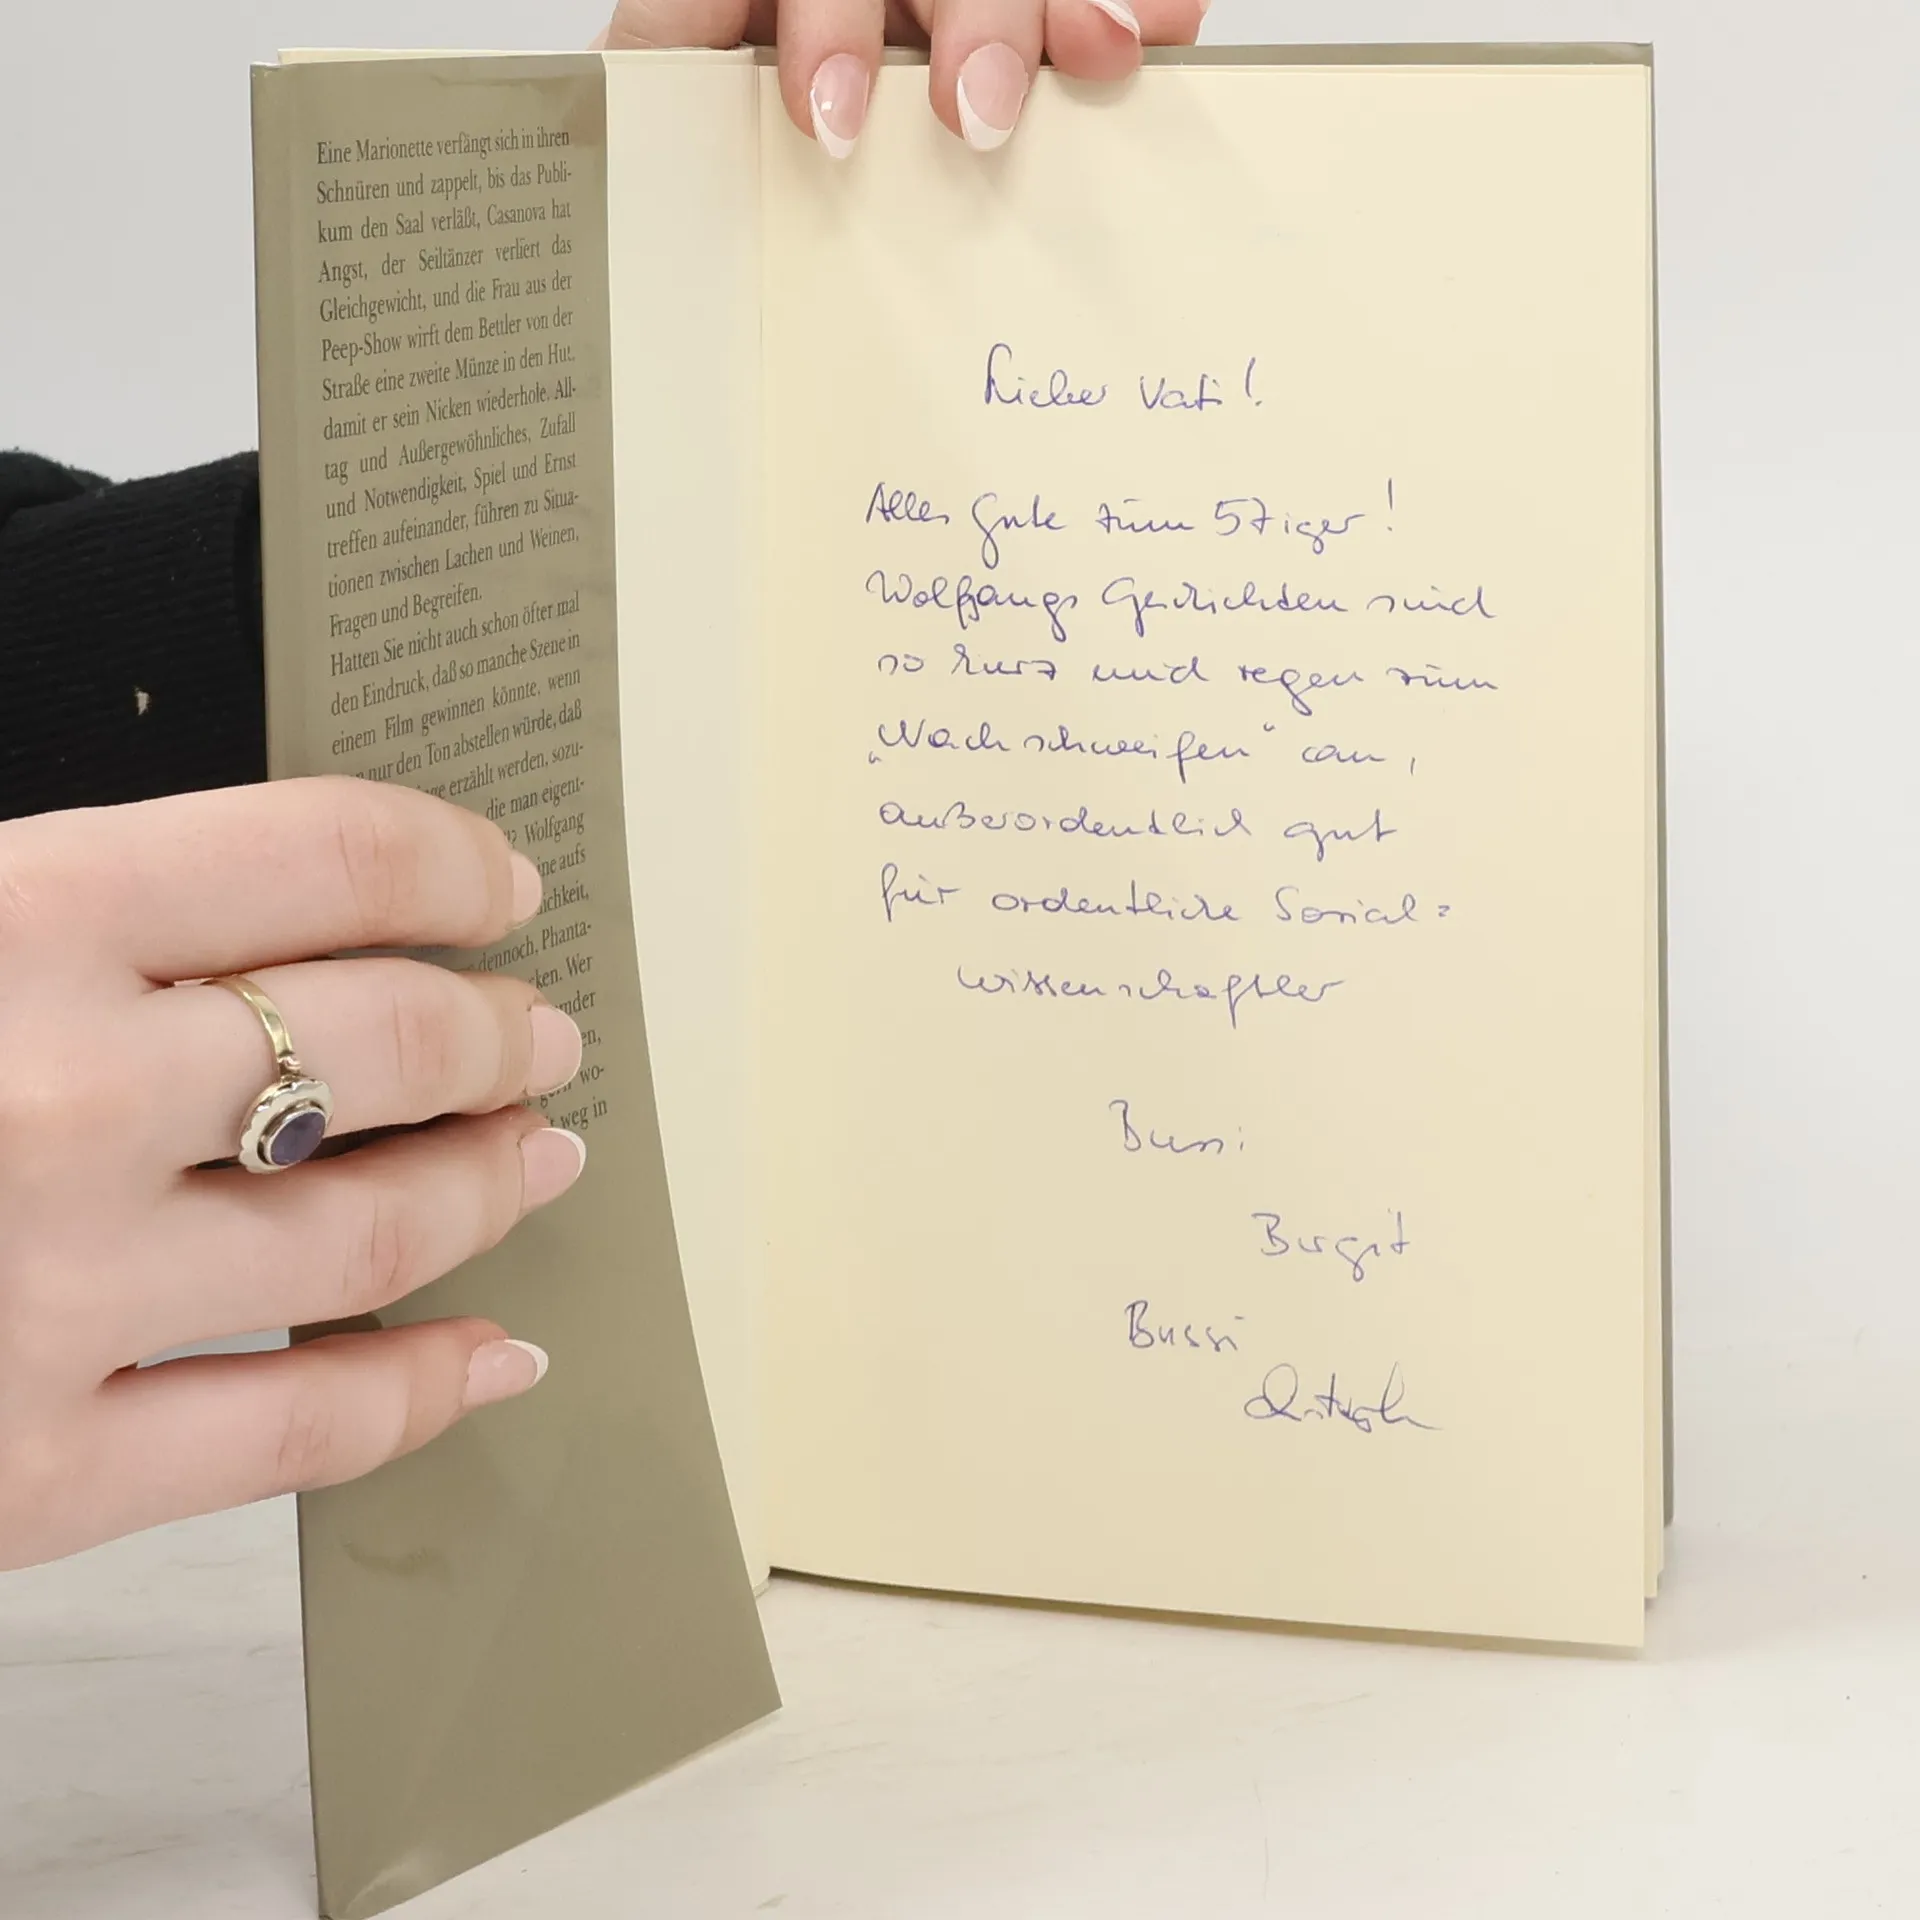 Eine Marionette verfängt sich in ihren
Schnüren und zappelt, bis das Publi-
kum den Saal verläßt, Casanova hat
Angst, der Seiltänzer verliert das
Gleichgewicht, und die Frau aus der
Peep-Show wirft dem Bettler von der
Straße eine zweite Münze in den Hut,
damit er sein Nicken wiederhole. All-
tag und Außergewöhnliches, Zufall
und Notwendigkeit, Spiel und Ernst
treffen aufeinander, führen zu Situa-
tionen zwischen Lachen und Weinen,
Fragen und Begreifen.
Hatten Sie nicht auch schon öfter mal
den Eindruck, daß so manche Szene in
einem Film gewinnen könnte, wenn
nur den Ton abstellen würde, daß
erzählt werden, sozu-
die man eigent-
Wolfgang
aufs
ichkeit,
dennoch, Phanta-
ken. Wer
wo-
weg in
Lieber Vati!
Alles Gute zum 57iger!
Wolfgangs Geschichten sind
so kurz und regen zum
„Nachschweifen“ an,
außerordentlich gut
für ordentliche Sozial=
wissenschaftler
Bussi
Birgit
Bussi